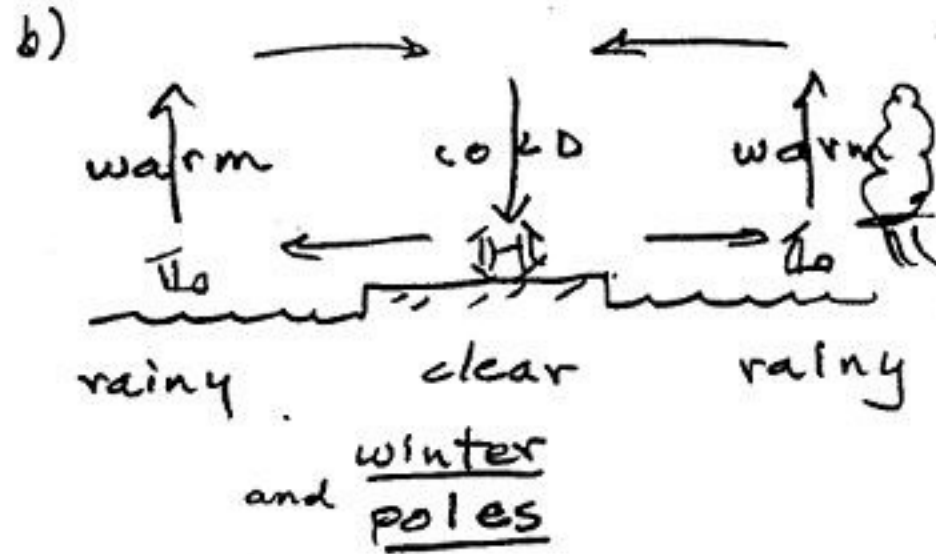 b)
warm cOLD warm
Lo H Lo
rainy clear rainy
and winter
poles